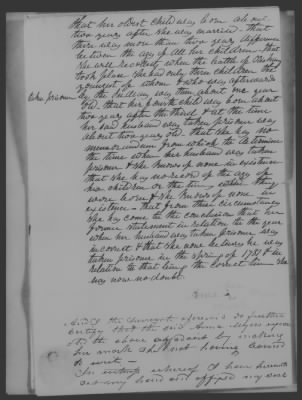 that her oldest child was born about
two years after she was married. that
there was more than two years difference
between the age of all her children – that
she will recollect when the battle of
took place she had only three children the
youngest of whom who was afterwards
taken prisoner by the Indians was then about one year
old. that her fourth child was born about
two years after the third & at the time
her said husband was taken prisoner was
about two years old. that she has no
memorandum from which to determine
the time when her husband was taken
prisoner & she knows of none in existence
that she has no record of the age of
her children or the time when they
were born & she knows of none in
existence – that from these circumstances
she has come to the conclusion that her
former statement in relation to the year
when her husband was taken prisoner was
incorrect & that she now believes he was
taken prisoner in the spring of 1781 & in
relation to that being the correct time she
has now no doubt.
And I the aforesaid do further
certify that the said Anna
to the above affidavit by making
her mark she not having learned
to write –
In testimony whereof I have hereunto
set my hand and affixed my seal